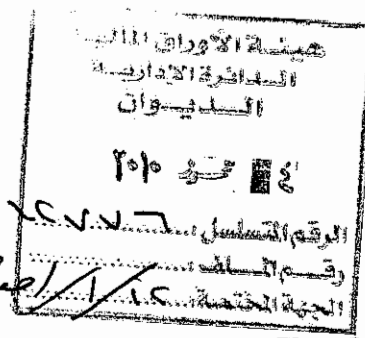 هيئة الأوراق المالية
الدائرة الادارية
الديوان
٤ تموز ٢٠١٠
الرقم المتسلسل:
رقم الملف:
الجهة المختصة: ١٢/١/